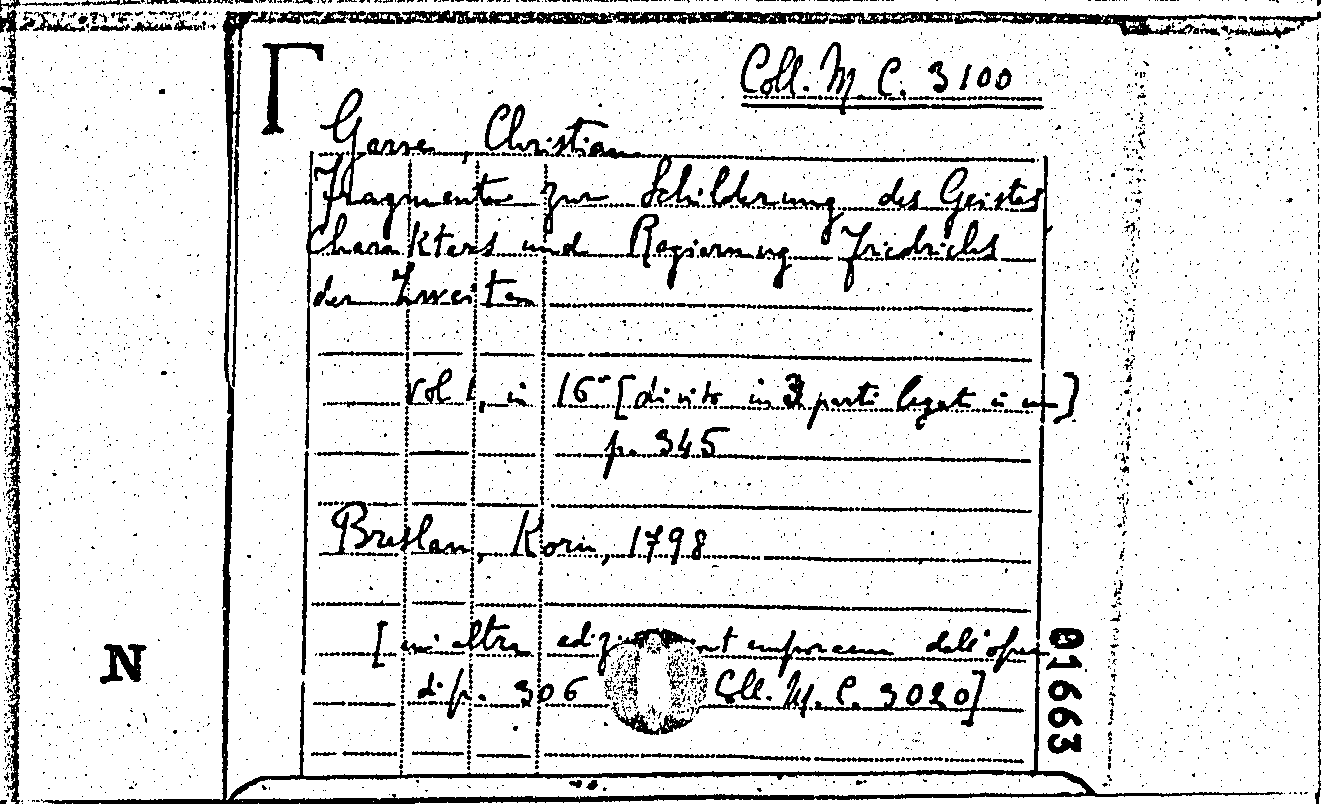 Coll. M. C. 3100
Garve, Christian
Fragmente zur Schilderung des Geistes
Charakters und Regierung Friedrichs
des Zweiten
vol 1, in 16° [diviso in 3 parti legate in un]
p. 345
Breslau, Korn, 1798
[un'altra dell'opera
di p. 306 Coll. M. C. 3020]
N
01663